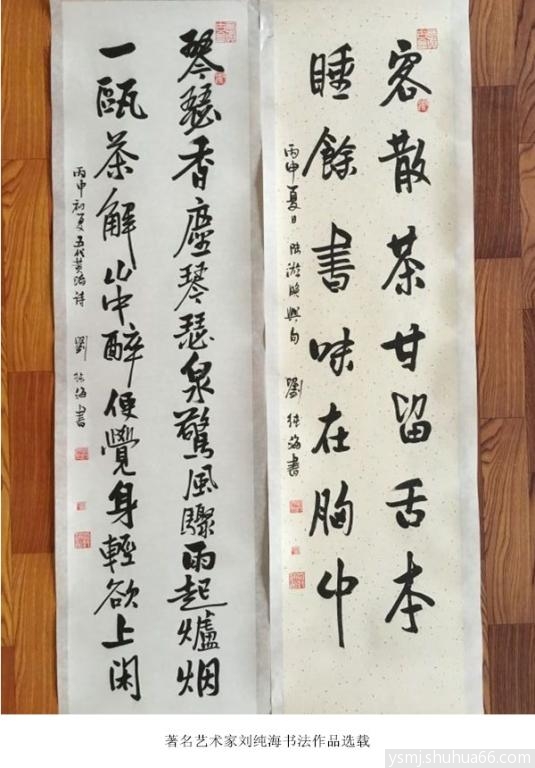 客散茶甘留舌本
睡餘書味在胸中
丙申夏日 陆游晚興句 劉純海書
琴瑟香塵琴瑟泉驚風驟雨起爐烟
一甌茶解山中醉便覺身輕欲上闲
丙申初夏五代黄滔诗 劉純海書
著名艺术家刘纯海书法作品选载
ysmj.shuhua66.com